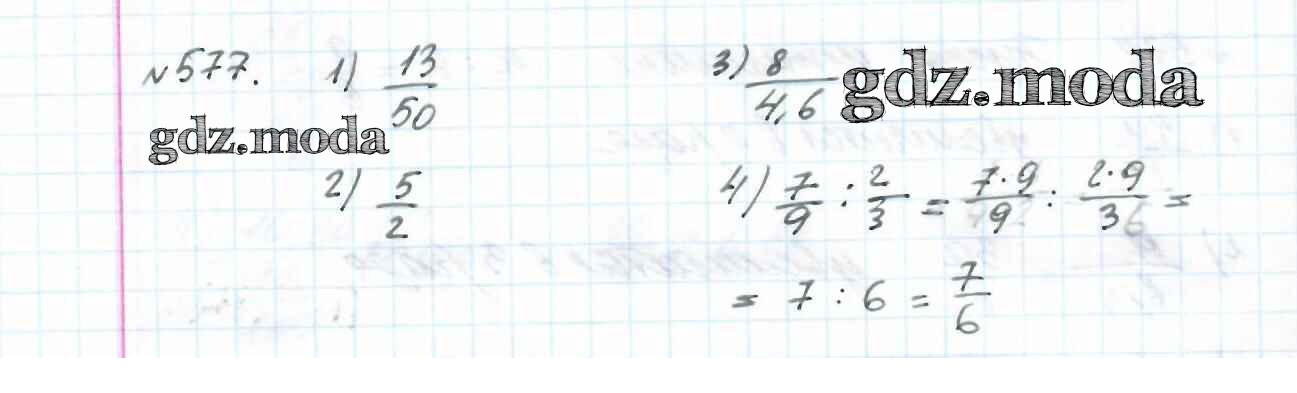 №577. 1) 13/50
gdz.moda
2) 5/2
3) 8/4,6 gdz.moda
4) 7/9 : 2/3 = 7·9/9 : 2·9/3 =
= 7 : 6 = 7/6